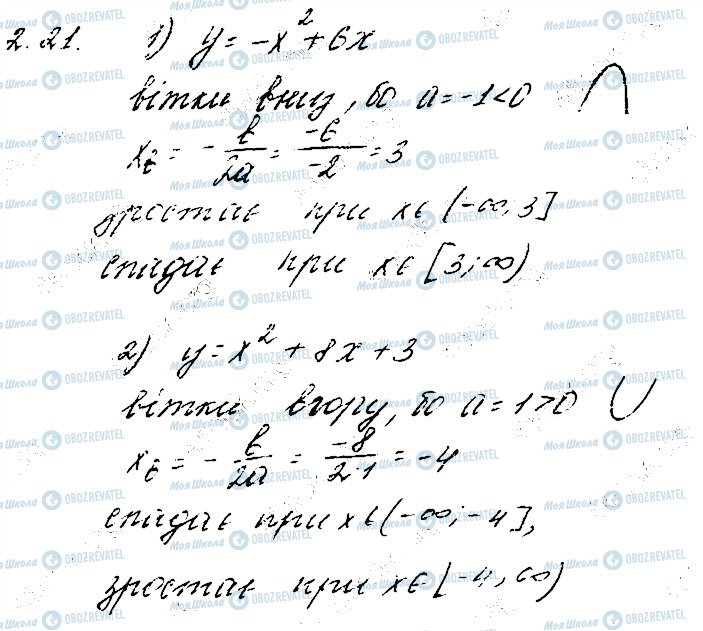 2.21. 1) y = -x² + 6x
вітки вниз, бо a = -1 < 0
xв = - в/2a = -6/-2 = 3
зростає при x ∈ (-∞; 3]
спадає при x ∈ [3; ∞)
2) y = x² + 8x + 3
вітки вгору, бо a = 1 > 0
xв = - в/2a = -8/2·1 = -4
спадає при x ∈ (-∞; -4],
зростає при x ∈ [-4; ∞)
МояШкола OBOZREVATEL